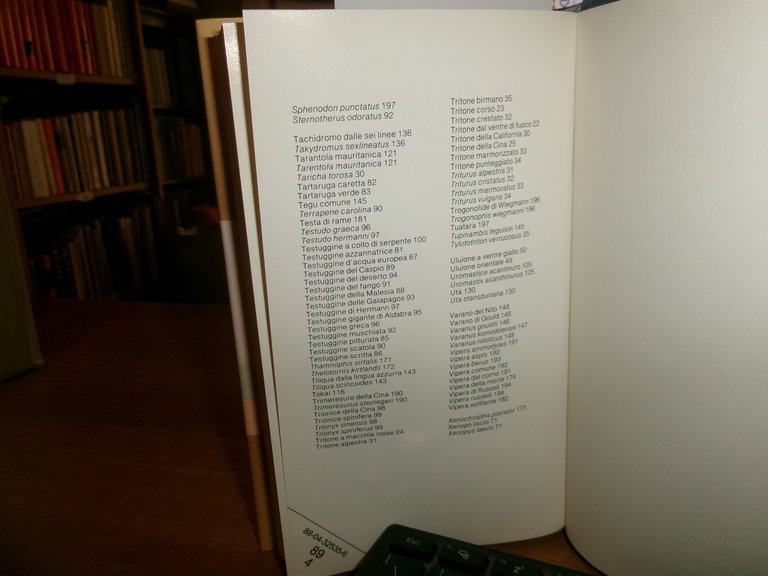 Sphenodon punctatus 197
Sternotherus odoratus 92
Tachidromo dalle sei linee 136
Takydromus sexlineatus 136
Tarantola mauritanica 121
Tarentola mauritanica 121
Taricha torosa 30
Tartaruga caretta 82
Tartaruga verde 83
Tegu comune 145
Terrapene carolina 90
Testa di rame 181
Testudo graeca 96
Testudo hermanni 97
Testuggine a collo di serpente 100
Testuggine azzannatrice 81
Testuggine d'acqua europea 87
Testuggine del Caspio 89
Testuggine del deserto 94
Testuggine del fango 91
Testuggine della Malesia 88
Testuggine delle Galapagos 93
Testuggine di Hermann 97
Testuggine gigante di Aldabra 95
Testuggine greca 96
Testuggine muschiata 92
Testuggine pitturata 85
Testuggine scatola 90
Testuggine scritta 86
Thamnophis sirtalis 171
Thelotornis kirtlandii 172
Tiliqua dalla lingua azzurra 143
Tiliqua scincoides 143
Tokai 116
Trimeresuro della Cina 190
Trimeresurus stejnegeri 190
Trionice della Cina 98
Trionice spinifera 99
Trionyx sinensis 98
Trionyx spiniferus 99
Tritone a macchie rosse 24
Tritone alpestre 31
Tritone birmano 35
Tritone corso 23
Tritone crestato 32
Tritone dal ventre di fuoco 22
Tritone della California 30
Tritone della Cina 25
Tritone marmorizzato 33
Tritone punteggiato 34
Triturus alpestris 31
Triturus cristatus 32
Triturus marmoratus 33
Triturus vulgaris 34
Trogonofide di Wiegmann 196
Trogonophis wiegmanni 196
Tuatara 197
Tupinambis teguixin 145
Tylototriton verrucosus 35
Ululone a ventre giallo 50
Ululone orientale 49
Uromastice acantinuro 105
Uromastix acanthinurus 105
Uta 130
Uta stansburiana 130
Varano del Nilo 148
Varano di Gould 146
Varanus gouldii 146
Varanus komodoensis 147
Varanus niloticus 148
Vipera ammodytes 191
Vipera aspis 192
Vipera berus 193
Vipera comune 192
Vipera dal corno 191
Vipera della morte 174
Vipera di Russell 194
Vipera russelii 194
Vipera soffiante 182
Xenochrophis piscator 173
Xenopo liscio 71
Xenopus laevis 71
88-04-32535-6
89
4
Esc